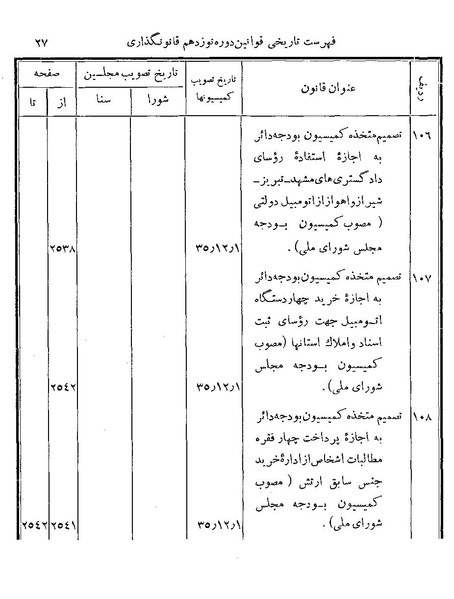 فهرست تاریخی قوانین دوره نوزدهم قانونگذاری ۲۷
ردیف عنوان قانون تاریخ تصویب کمیسیونها تاریخ تصویب مجلسین صفحه
شورا سنا از تا
۱۰۶ تصمیم متخذه کمیسیون بودجه دائر
به اجازهٔ استفادهٔ رؤسای
دادگستری‌های مشهد_تبریز_
شیراز و اهواز از اتومبیل دولتی
( مصوب کمیسیون بودجه
مجلس شورای ملی). ۳۵٫۱۲٫۱ ۲۵۳۸
۱۰۷ تصمیم متخذه کمیسیون بودجه دائر
به اجازهٔ خرید چهار دستگاه
اتومبیل جهت رؤسای ثبت
اسناد و املاک استانها (مصوب
کمیسیون بودجه مجلس
شورای ملی). ۳۵٫۱۲٫۱ ۲۵۴۲
۱۰۸ تصمیم متخذه کمیسیون بودجه دائر
به اجازهٔ پرداخت چهار فقره
مطالبات اشخاص از ادارهٔ خرید
جنس سابق ارتش ( مصوب
کمیسیون بودجه مجلس
شورای ملی). ۳۵٫۱۲٫۱ ۲۵۴۱ ۲۵۴۲